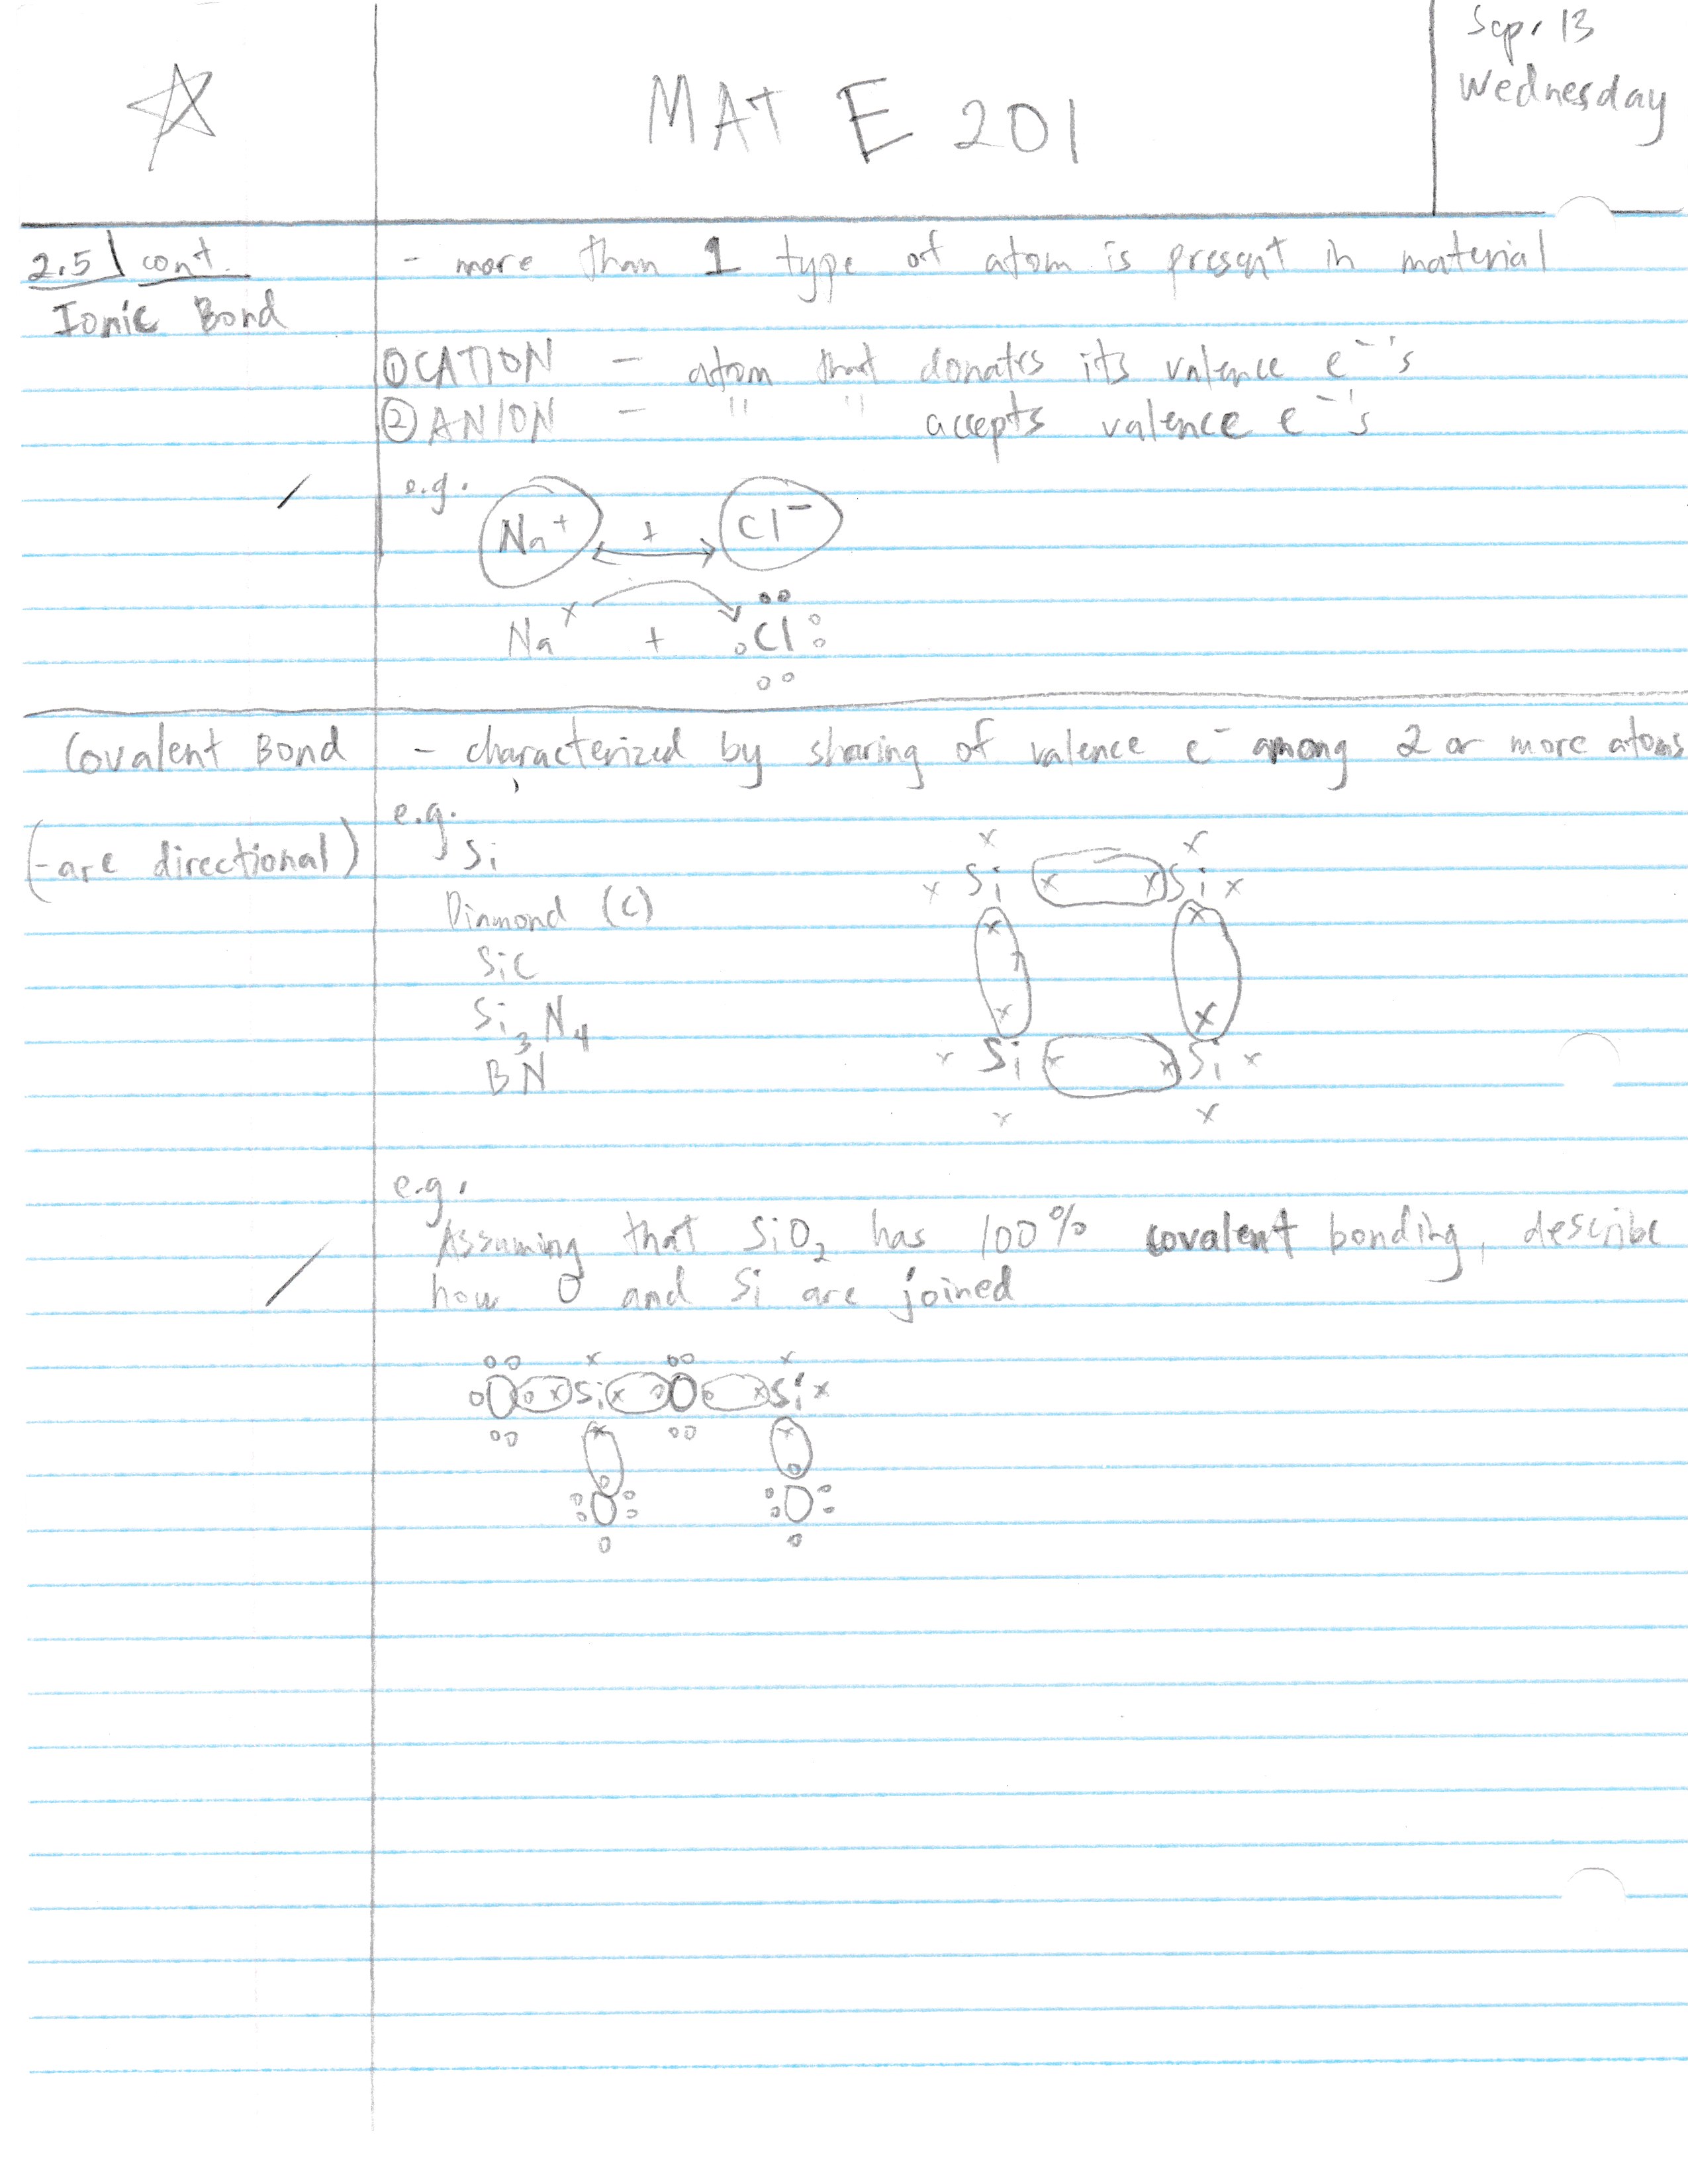 Sep. 13
Wednesday
MAT E 201
2.5 | cont.
Ionic Bond
- more than 1 type of atom is present in material
① CATION - atom that donates its valence e⁻'s
② ANION - " " accepts valence e⁻'s
e.g.
Na⁺ + Cl⁻
Na x + Cl
Covalent Bond
- characterized by sharing of valence e⁻ among 2 or more atoms
(-are directional)
e.g.
Si
Diamond (C)
SiC
Si₃N₄
BN
x x
x Si x x Si x
x x
x x
x Si x x Si x
x x
e.g.
Assuming that SiO₂ has 100% covalent bonding, describe
how O and Si are joined
x x
O x Si x O x Si x
x x
O O